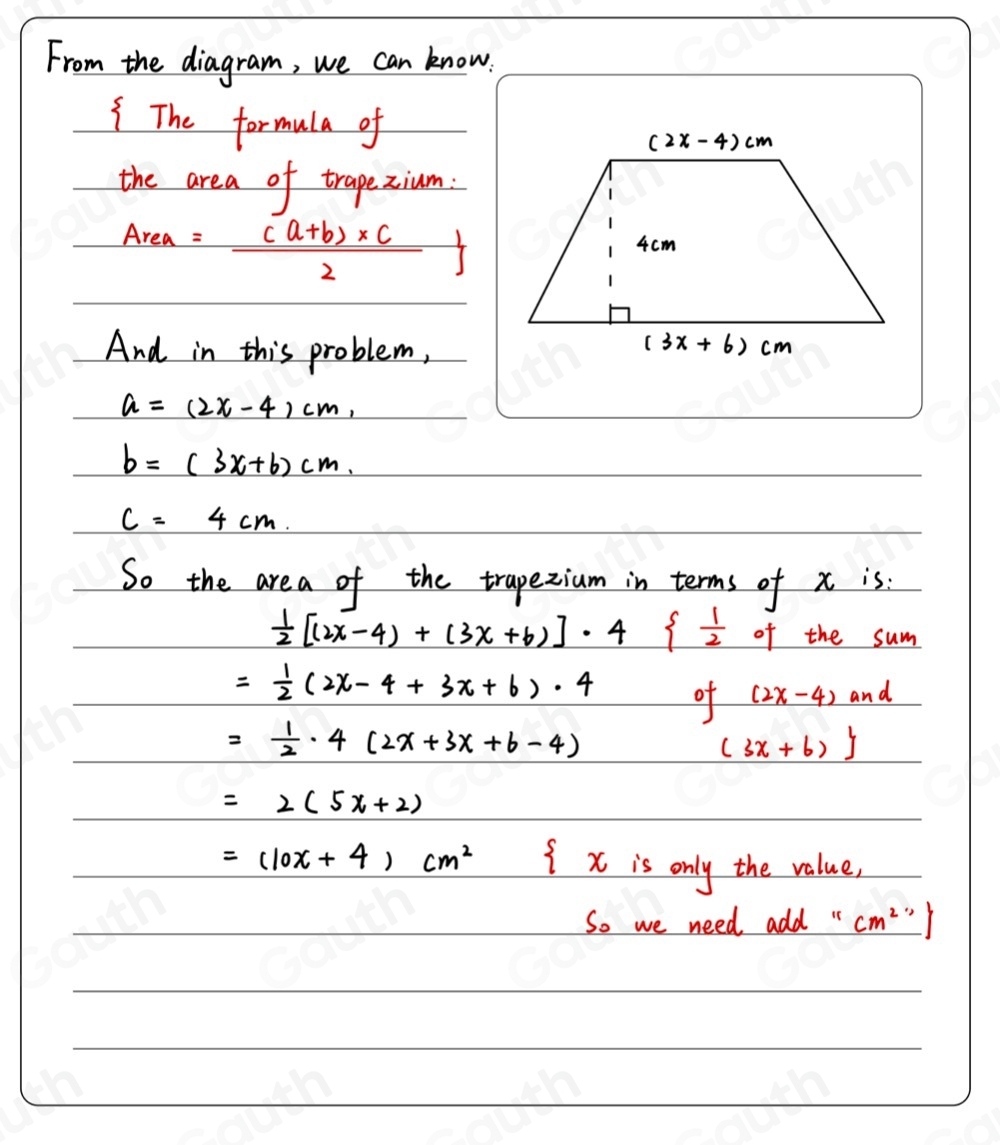 From the diagram, we can know:
{ The formula of
the area of trapezium:
Area = \frac{(a+b) × c}{2} }
(2x-4)cm
4cm
(3x+6) cm
And in this problem,
a = (2x-4) cm,
b = (3x+6) cm.
c = 4 cm.
So the area of the trapezium in terms of x is:
\frac{1}{2} [(2x-4) + (3x+6)] · 4 { \frac{1}{2} of the sum
= \frac{1}{2} (2x-4+3x+6) · 4 of (2x-4) and
= \frac{1}{2} · 4 (2x+3x+6-4) (3x+6) }
= 2(5x+2)
= (10x+4) cm² { x is only the value,
So we need add "cm²" }
Gauth